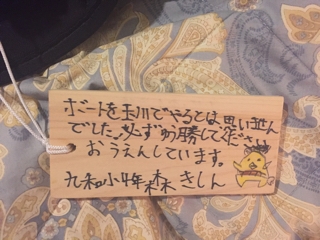 ボートを玉川でやるとは思いませんでした。必ずゆう勝して下さい
おうえんしています。
九和小4年 森 きしん